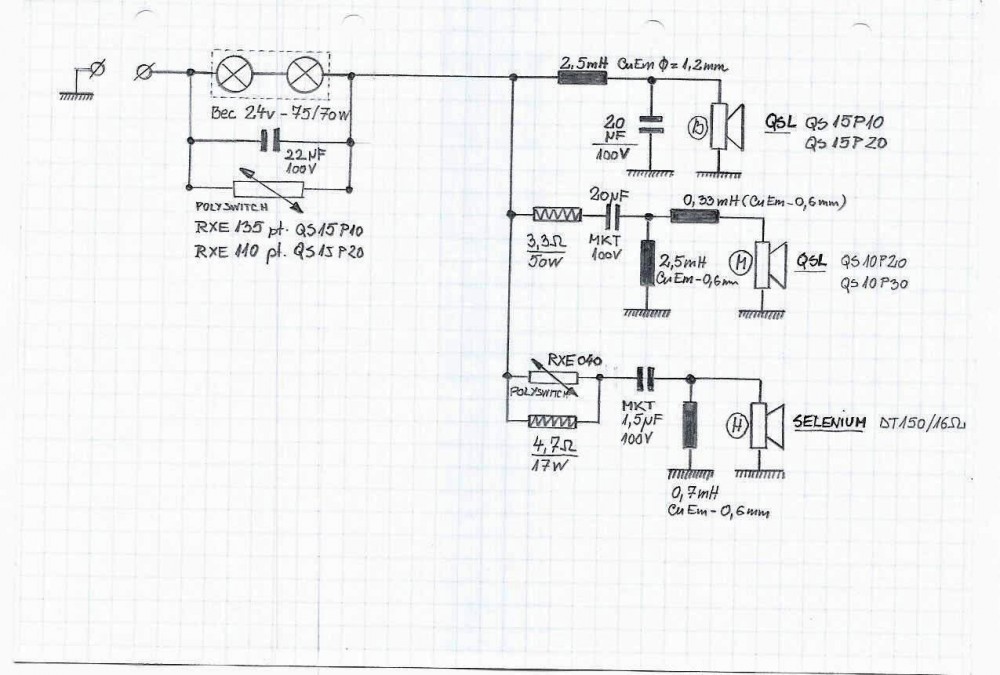 Bec 24v - 75/70W
22µF
100V
POLYSWITCH
RXE 135 pt. QS15P10
RXE 110 pt. QS15P20
2,5mH CuEm ϕ=1,2mm
20
µF
100V
B
QSL QS 15P10
QS 15P20
3,3Ω
50W
20µF
MKT
100V
2,5mH
CuEm-0,6mm
0,33mH (CuEm-0,6mm)
M
QSL QS10P20
QS10P30
RXE 040
POLYSWITCH
4,7Ω
17W
MKT
1,5µF
100V
0,7mH
CuEm-0,6mm
H
SELENIUM DT150/16Ω